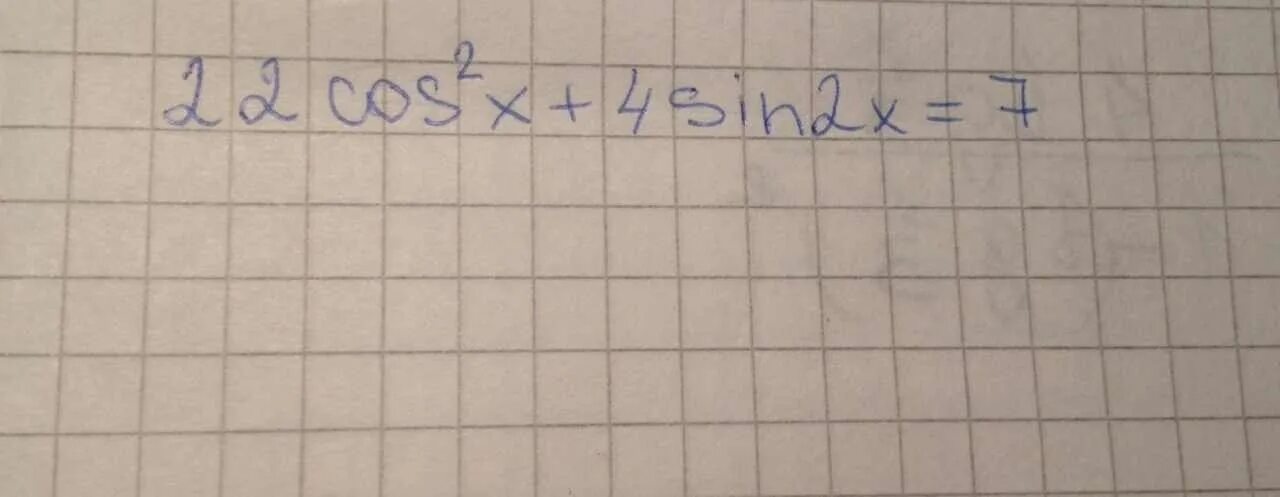 22 cos²x + 4 sin2x = 7